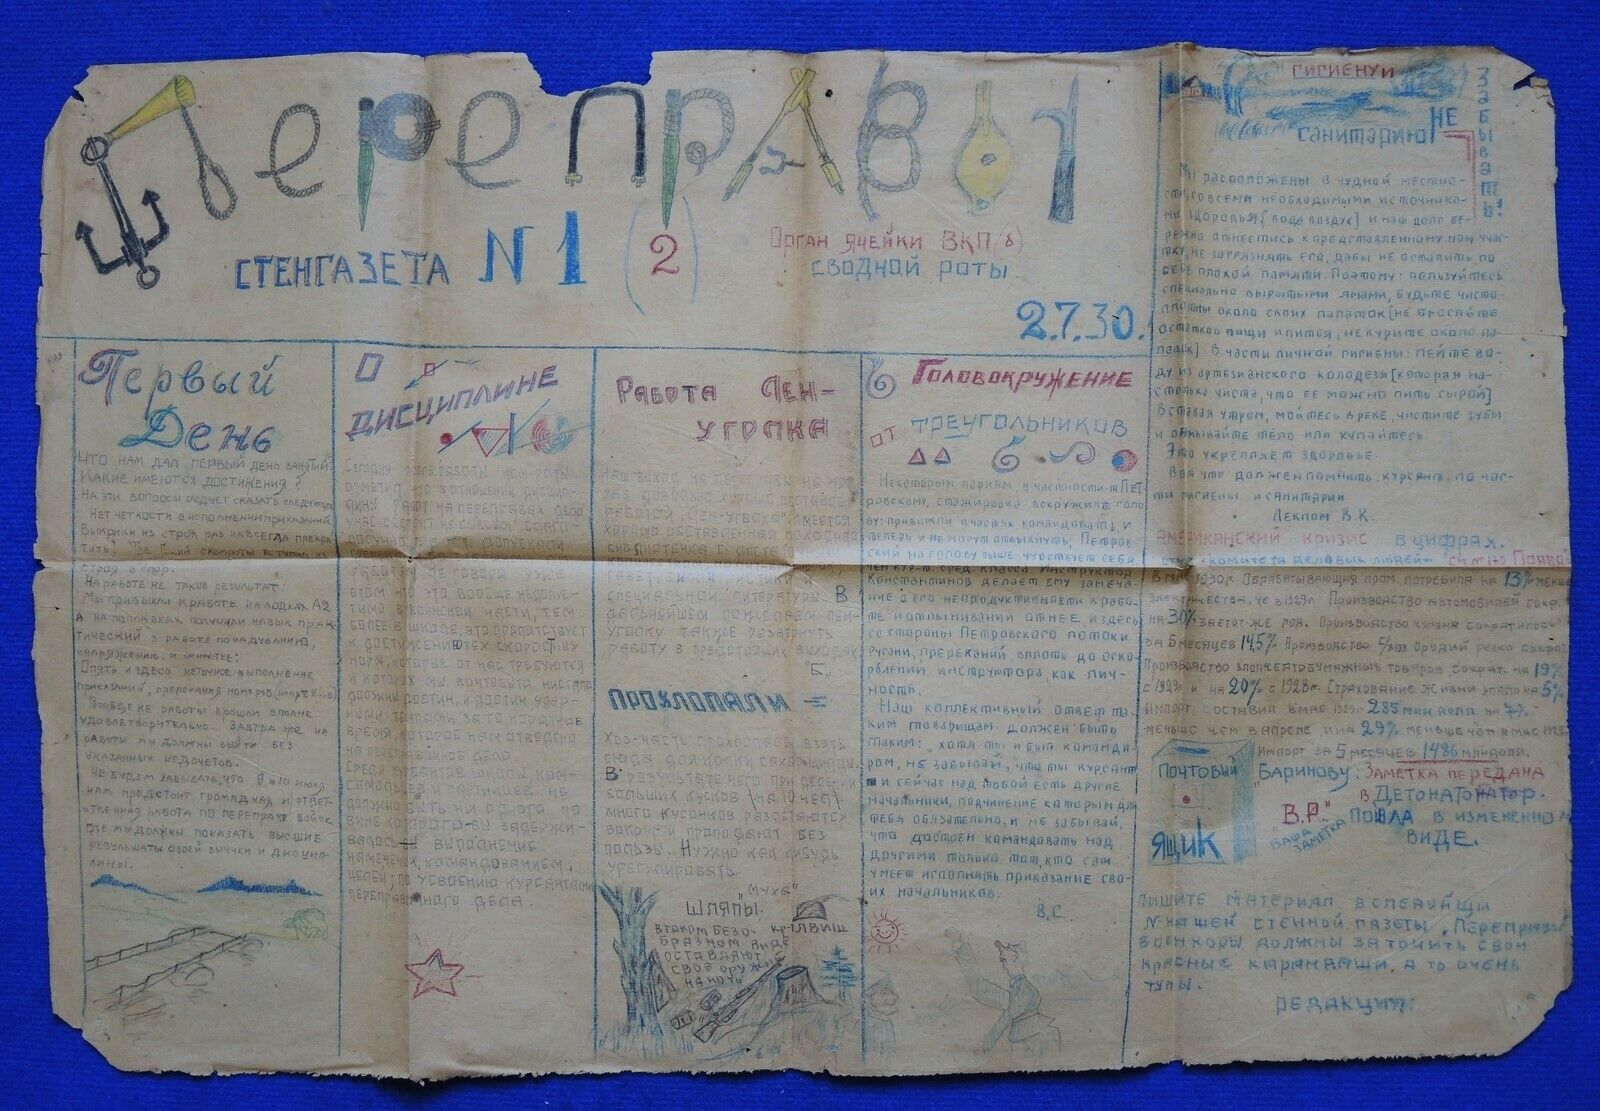 Переправы
СТЕНГАЗЕТА N 1 (2)
Орган ячейки ВКП(б)
СВОДНОЙ РОТЫ.
2.7.30.
Первый
День
ЧТО НАМ ДАЛ ПЕРВЫЙ ДЕНЬ ЗАНЯТИЙ
КАКИЕ ИМЕЮТСЯ ДОСТИЖЕНИЯ?
НА ЭТИ ВОПРОСЫ СЛЕДУЕТ СКАЗАТЬ СЛЕДУЮЩ
НЕТ ЧЕТКОСТИ В ИСПОЛНЕНИИ ПРИКАЗАНИЙ
ВЫКРИКИ ИЗ СТРОЯ РАЗ НАВСЕГДА ПРЕКРА-
ТИТЬ,
СТРОЯ В СПОР.
НА РАБОТЕ НЕ ТАКОВ РЕЗУЛЬТАТ.
МЫ ПРИВЫКЛИ К РАБОТЕ НА ЛОДКАХ А2
А НА ПОПЛАВКАХ ПОЛУЧИЛИ НАВЫК ПРАК-
ТИЧЕСКИЙ В РАБОТЕ ПО НАДУВАНИЮ,
СНАРЯЖЕНИЮ И ОСНАСТКЕ:
ОПЯТЬ И ЗДЕСЬ НЕТОЧНОЕ ВЫПОЛНЕНИЕ
ПРИКАЗАНИЙ, ПРЕРЕКАНИЯ НОМЕРОВ
ВООБЩЕ ЖЕ РАБОТЫ ПРОШЛИ ВПОЛНЕ
УДОВЛЕТВОРИТЕЛЬНО. ЗАВТРА ЖЕ НА
РАБОТЫ МЫ ДОЛЖНЫ ВЫЙТИ БЕЗ
УКАЗАННЫХ НЕДОЧЕТОВ.
НЕ БУДЕМ ЗАБЫВАТЬ, ЧТО 9 и 10 июля
НАМ ПРЕДСТОИТ ГРОМАДНАЯ И ОТВЕТ-
СТВЕННАЯ РАБОТА ПО ПЕРЕПРАВЕ ВОЙСК
ГДЕ МЫ ДОЛЖНЫ ПОКАЗАТЬ ВЫСШИЕ
РЕЗУЛЬТАТЫ СВОЕЙ ВЫУЧКИ И ДИСЦИП-
ЛИНЫ.
О
ДИСЦИПЛИНЕ
СЕГОДНЯ ПОСЛЕ РАБОТЫ КОМ-РОТЫ
ОТМЕТИЛ, ЧТО В ОТНОШЕНИИ ДИСЦИП-
ЛИНЫ РАБОТ НА ПЕРЕПРАВАХ ДЕЛО
У НАС ОБСТОИТ НЕ СОВСЕМ
НЕ ГОВОРЯ УЖЕ
ОБ ТОМ ЧТО ЭТО ВООБЩЕ НЕДОПУС-
ТИМО В ВОИНСКОЙ ЧАСТИ, ТЕМ
БОЛЕЕ В ШКОЛЕ, ЭТО ПРЕПЯТСТВУЕТ
К ДОСТИЖЕНИЮ ТЕХ СКОРОСТНЫХ
НОРМ, КОТОРЫЕ ОТ НАС ТРЕБУЮТСЯ
И КОТОРЫХ МЫ
ДОЛЖНЫ ДОСТИЧ, И ДОСТИЧ УДАР-
НЫМИ ТЕМПАМИ ЗА ТО КОРОТКОЕ
ВРЕМЯ, КОТОРОЕ НАМ ОТВЕДЕНО
НА ПЕРЕПРАВНОЕ ДЕЛО.
СРЕДИ КУРСАНТОВ ШКОЛЫ, КОМ-
СОМОЛЬЦЕВ И ПАРТИЙЦЕВ НЕ
ДОЛЖНО БЫТЬ НИ ОДНОГО ПО
ВИНЕ КОТОРОГО БЫ ЗАДЕРЖИ-
ВАЛОСЬ ВЫПОЛНЕНИЕ
НАМЕЧЕННЫХ КОМАНДОВАНИЕМ,
ЦЕЛЕЙ, ПО УСВОЕНИЮ КУРСАНТАМИ
ПЕРЕПРАВОЧНОГО ДЕЛА.
РАБОТА ЛЕН-
УГОЛКА
НАШ ВЫХОД НА ПЕРЕПРАВЫ НА ЭТОТ
РАЗ ДОВОЛЬНО ХОРОШО ОБСТАВЛЕН
РАБОТОЙ ЛЕН-УГОЛКА. ИМЕЕТСЯ
ХОРОШО ОБСТАВЛЕННАЯ ПОХОДНАЯ
БИБЛИОТЕЧКА С
ГАЗЕТ,
СПЕЦИАЛЬНОЙ ЛИТЕРАТУРЫ. В
ДАЛЬНЕЙШЕМ ПОЖЕЛАЕМ ЛЕН-
УГОЛКУ ТАКЖЕ РАЗВЕРНУТЬ
РАБОТУ В ПРЕДСТОЯЩИХ ВЫХОДАХ
"Б"
ПРОХЛОПАЛИ
ХОЗ-ЧАСТЬ ПРОХЛОПАЛА ВЗЯТЬ
СЮДА ДЛЯ КОЛКИ САХАРА ЩИПЦЫ.
В РЕЗУЛЬТАТЕ ЧЕГО ПРИ ДЕЛЕНИИ
БОЛЬШИХ КУСКОВ (НА 10 ЧЕЛ)
МНОГО КУСОЧКОВ РАЗЛЕТАЮТСЯ
ВОКРУГ И ПРОПАДАЮТ БЕЗ
ПОЛЬЗЫ. НУЖНО КАК НИБУДЬ
УРЕГУЛИРОВАТЬ.
"МУХА"
ШЛЯПЫ.
В ТАКОМ БЕЗО-
БРАЗНОМ ВИДЕ
ОСТАВЛЯЮТ
СВОЕ ОРУЖИЕ
НА НОЧЬ
ГОЛОВОКРУЖЕНИЕ
ОТ ТРЕУГОЛЬНИКОВ
НЕКОТОРЫМ ПАРНЯМ, В ЧАСТНОСТИ т. ПЕТ-
РОВСКОМУ, СТАЖИРОВКА ВСКРУЖИЛА ГОЛО-
ВУ: ПРИВЫКЛИ В ЧАСТЯХ КОМАНДОВАТЬ, И
ТЕПЕРЬ И НЕ МОГУТ ОТВЫКНУТЬ; ПЕТРОВ-
СКИЙ НА ГОЛОВУ ВЫШЕ ЧУВСТВУЕТ СЕБЯ
ЧЕМ КУР-Т СРЕД. КЛАССА. ИНСТРУКТОР
КОНСТАНТИНОВ ДЕЛАЕТ ЕМУ ЗАМЕЧА-
НИЕ О ЕГО НЕПРОДУКТИВНОСТИ В РАБО-
ТЕ И ОТЛЫНИВАНИИ ОТ НЕЕ И ЗДЕСЬ
СО СТОРОНЫ ПЕТРОВСКОГО ПОТОКИ
РУГАНИ, ПРЕРЕКАНИЙ, ВПЛОТЬ ДО ОСКО-
РБЛЕНИЙ ИНСТРУКТОРА, КАК ЛИЧ-
НОСТЬ.
НАШ КОЛЛЕКТИВНЫЙ ОТВЕТ ТА-
КИМ ТОВАРИЩАМ ДОЛЖЕН БЫТЬ
ТАКИМ: "ХОТЯ ТЫ И БЫЛ КОМАНДИ-
РОМ, НЕ ЗАБЫВАЙ, ЧТО ТЫ КУРСАНТ
И СЕЙЧАС НАД ТОБОЙ ЕСТЬ ДРУГИЕ
НАЧАЛЬНИКИ, ПОДЧИНЕНИЕ КОТОРЫМ ДЛЯ
ТЕБЯ ОБЯЗАТЕЛЬНО, И НЕ ЗАБЫВАЙ,
ЧТО ДОСТОЕН КОМАНДОВАТЬ НАД
ДРУГИМИ ТОЛЬКО ТОТ, КТО САМ
УМЕЕТ ИСПОЛНЯТЬ ПРИКАЗАНИЕ СВО-
ИХ НАЧАЛЬНИКОВ.
В.С.
ГИГИЕНУ И
САНИТАРИЮ НЕ
ЗАБЫВАТЬ!
МЫ РАСПОЛОЖЕНЫ В ЧУДНОЙ МЕСТНО-
СТИ, СО ВСЕМИ НЕОБХОДИМЫМИ ИСТОЧНИКА-
МИ ЗДОРОВЬЯ [ВОДА ВОЗДУХ] И НАШ ДОЛГ БЕ-
РЕЖНО ОТНЕСТИСЬ К ПРЕДСТАВЛЕННОМУ НАМ УЧАС-
ТКУ, НЕ ЗАГРЯЗНЯТЬ ЕГО, ДАБЫ НЕ ОСТАВИТЬ ПО
СЕБЕ ПЛОХОЙ ПАМЯТИ. ПОЭТОМУ: ПОЛЬЗУЙТЕСЬ
СПЕЦИАЛЬНО ВЫРЫТЫМИ ЯМАМИ, БУДЬТЕ ЧИСТО-
ПЛОТНЫ ОКОЛО СВОИХ ПАЛАТОК [НЕ БРОСАЙТЕ
ОСТАТКОВ ПИЩИ И ПИТЬЯ, НЕ КУРИТЕ ОКОЛО ПА-
ЛАТОК] В ЧАСТИ ЛИЧНОЙ ГИГИЕНЫ: ПЕЙТЕ ВО-
ДУ ИЗ АРТЕЗИАНСКОГО КОЛОДЕЗЯ [КОТОРАЯ НА-
СТОЛЬКО ЧИСТА, ЧТО ЕЕ МОЖНО ПИТЬ СЫРОЙ]
ВСТАВАЯ УТРОМ, МОЙТЕСЬ В РЕКЕ, ЧИСТИТЕ ЗУБЫ
И ОБМЫВАЙТЕ ТЕЛО ИЛИ КУПАЙТЕСЬ.
ЭТО УКРЕПЛЯЕТ ЗДОРОВЬЕ.
ВОТ ЧТО ДОЛЖЕН ПОМНИТЬ КУРСАНТ ПО ЧАС-
ТИ ГИГИЕНЫ И САНИТАРИИ
ЛЕКПОМ В.К.
АМЕРИКАНСКИЙ КРИЗИС В ЦИФРАХ.
КОМИТЕТА ДЕЛОВЫХ ЛЮДЕЙ
В МАЕ 1930г. ОБРАБАТЫВАЮЩАЯ ПРОМ. ПОТРЕБИЛА НА 13% МЕНЬШЕ
ЭЛЕКТРИЧЕСТВА, ЧЕ В 1929г. ПРОИЗВОДСТВО АВТОМОБИЛЕЙ СОКР.
НА 30% ЗА ТОТ-ЖЕ ПОВ. ПРОИЗВОДСТВО ЧУГУНА СОКРАТИЛОСЬ
ЗА 5 МЕСЯЦЕВ 14,5% ПРОИЗВОДСТВО С/ХОЗ ОРУДИЙ РЕЗКО СОКРАТ.
ПРОИЗВОДСТВО ХЛОПЧЕАТОБУМАЖНЫХ ТОВАРОВ СОКРАТ. НА 19%
С 1929г И НА 20% С 1928г. СТРАХОВАНИЕ ЖИЗНИ УПАЛО НА 5%
ИМПОРТ, СОСТАВИЛ В МАЕ 285 МИЛ. ДОЛЛ НА 7%
МЕНЬШЕ ЧЕМ В АПРЕЛЕ И НА 29% МЕНЬШЕ ЧЕМ В МАЕ 1929
ИМПОРТ ЗА 5 МЕСЯЦЕВ 1486 МИЛ ДОЛЛ.
ПОЧТОВЫЙ
ЯЩИК
БАРИНОВУ: ЗАМЕТКА ПЕРЕДАНА
В ДЕТОНАТОР.
"В.Р." ВАША ЗАМЕТКА ПОШЛА В ИЗМЕНЕННОМ
ВИДЕ.
ПИШИТЕ МАТЕРИАЛ В СЛЕДУЙЩИ
N НАШЕЙ СТЕННОЙ ГАЗЕТЫ "ПЕРЕПРАВЫ"
ВОЕНКОРЫ ДОЛЖНЫ ЗАТОЧИТЬ СВОИ
КРАСНЫЕ КАРАНДАШИ, А ТО ОЧЕНЬ
ТУПЫ.
РЕДАКЦИЯ.